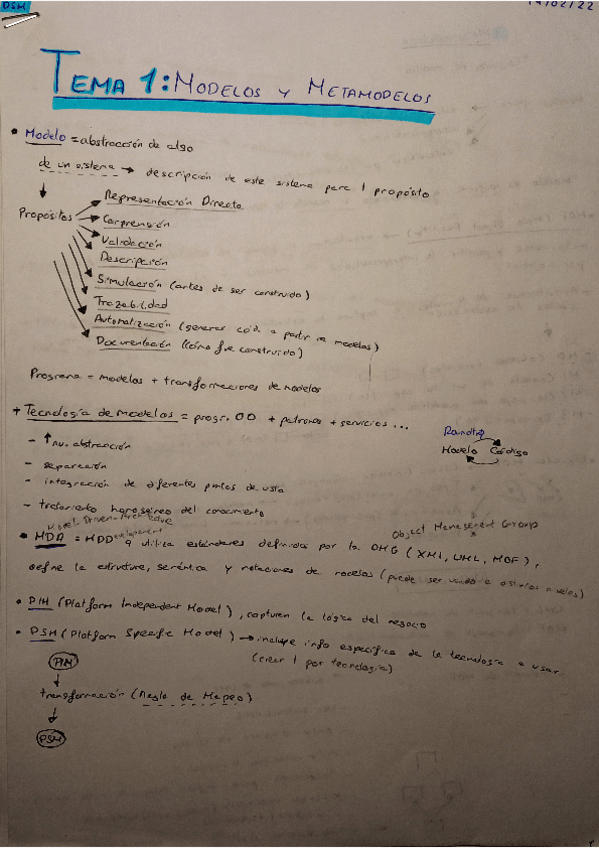 DSM
14/02/22
TEMA 1: MODELOS Y METAMODELOS
• Modelo = abstracción de algo
de un sistema → descripción de este sistema para 1 propósito
Propósitos
Representación Directa
Comprensión
Validación
Descripción
Simulación (antes de ser construido)
Trazabilidad
Automatización (generar cód. a partir de modelos)
Documentación (cómo fue construido)
Programa = modelos + transformaciones de modelos
+ Tecnología de modelos = progr. OO + patrones + servicios ...
- ↑ nv. abstracción
- separación
- integración de diferentes puntos de vista
- tratamiento homogéneo del conocimiento
Roundtrip
Modelo Código
Model Driven Architecture
development
Object Management Group
• MDA = MDD q utiliza estándares definidos por la OMG (XMI, UML, MOF),
define la estructura, semántica y notaciones de modelos (puede ser usado a distintos niveles)
• PIM (Platform Independent Model), capturan la lógica del negocio
• PSM (Platform Specific Model) → incluye info específica de la tecnología a usar
(crear 1 por tecnología)
PIM
transformación (Regla de Mapeo)
PSM